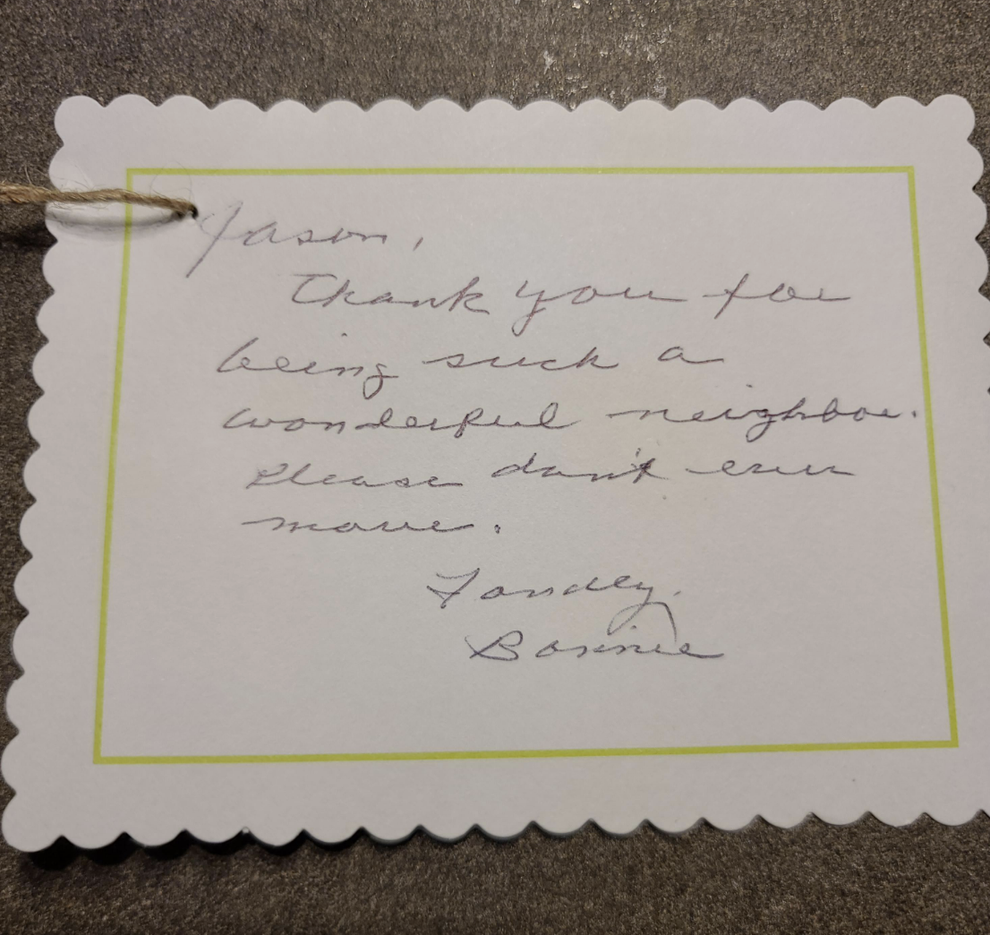 Jason,
Thank you for
being such a
wonderful neighbor.
Please don't ever
move.
Fondly,
Bonnie